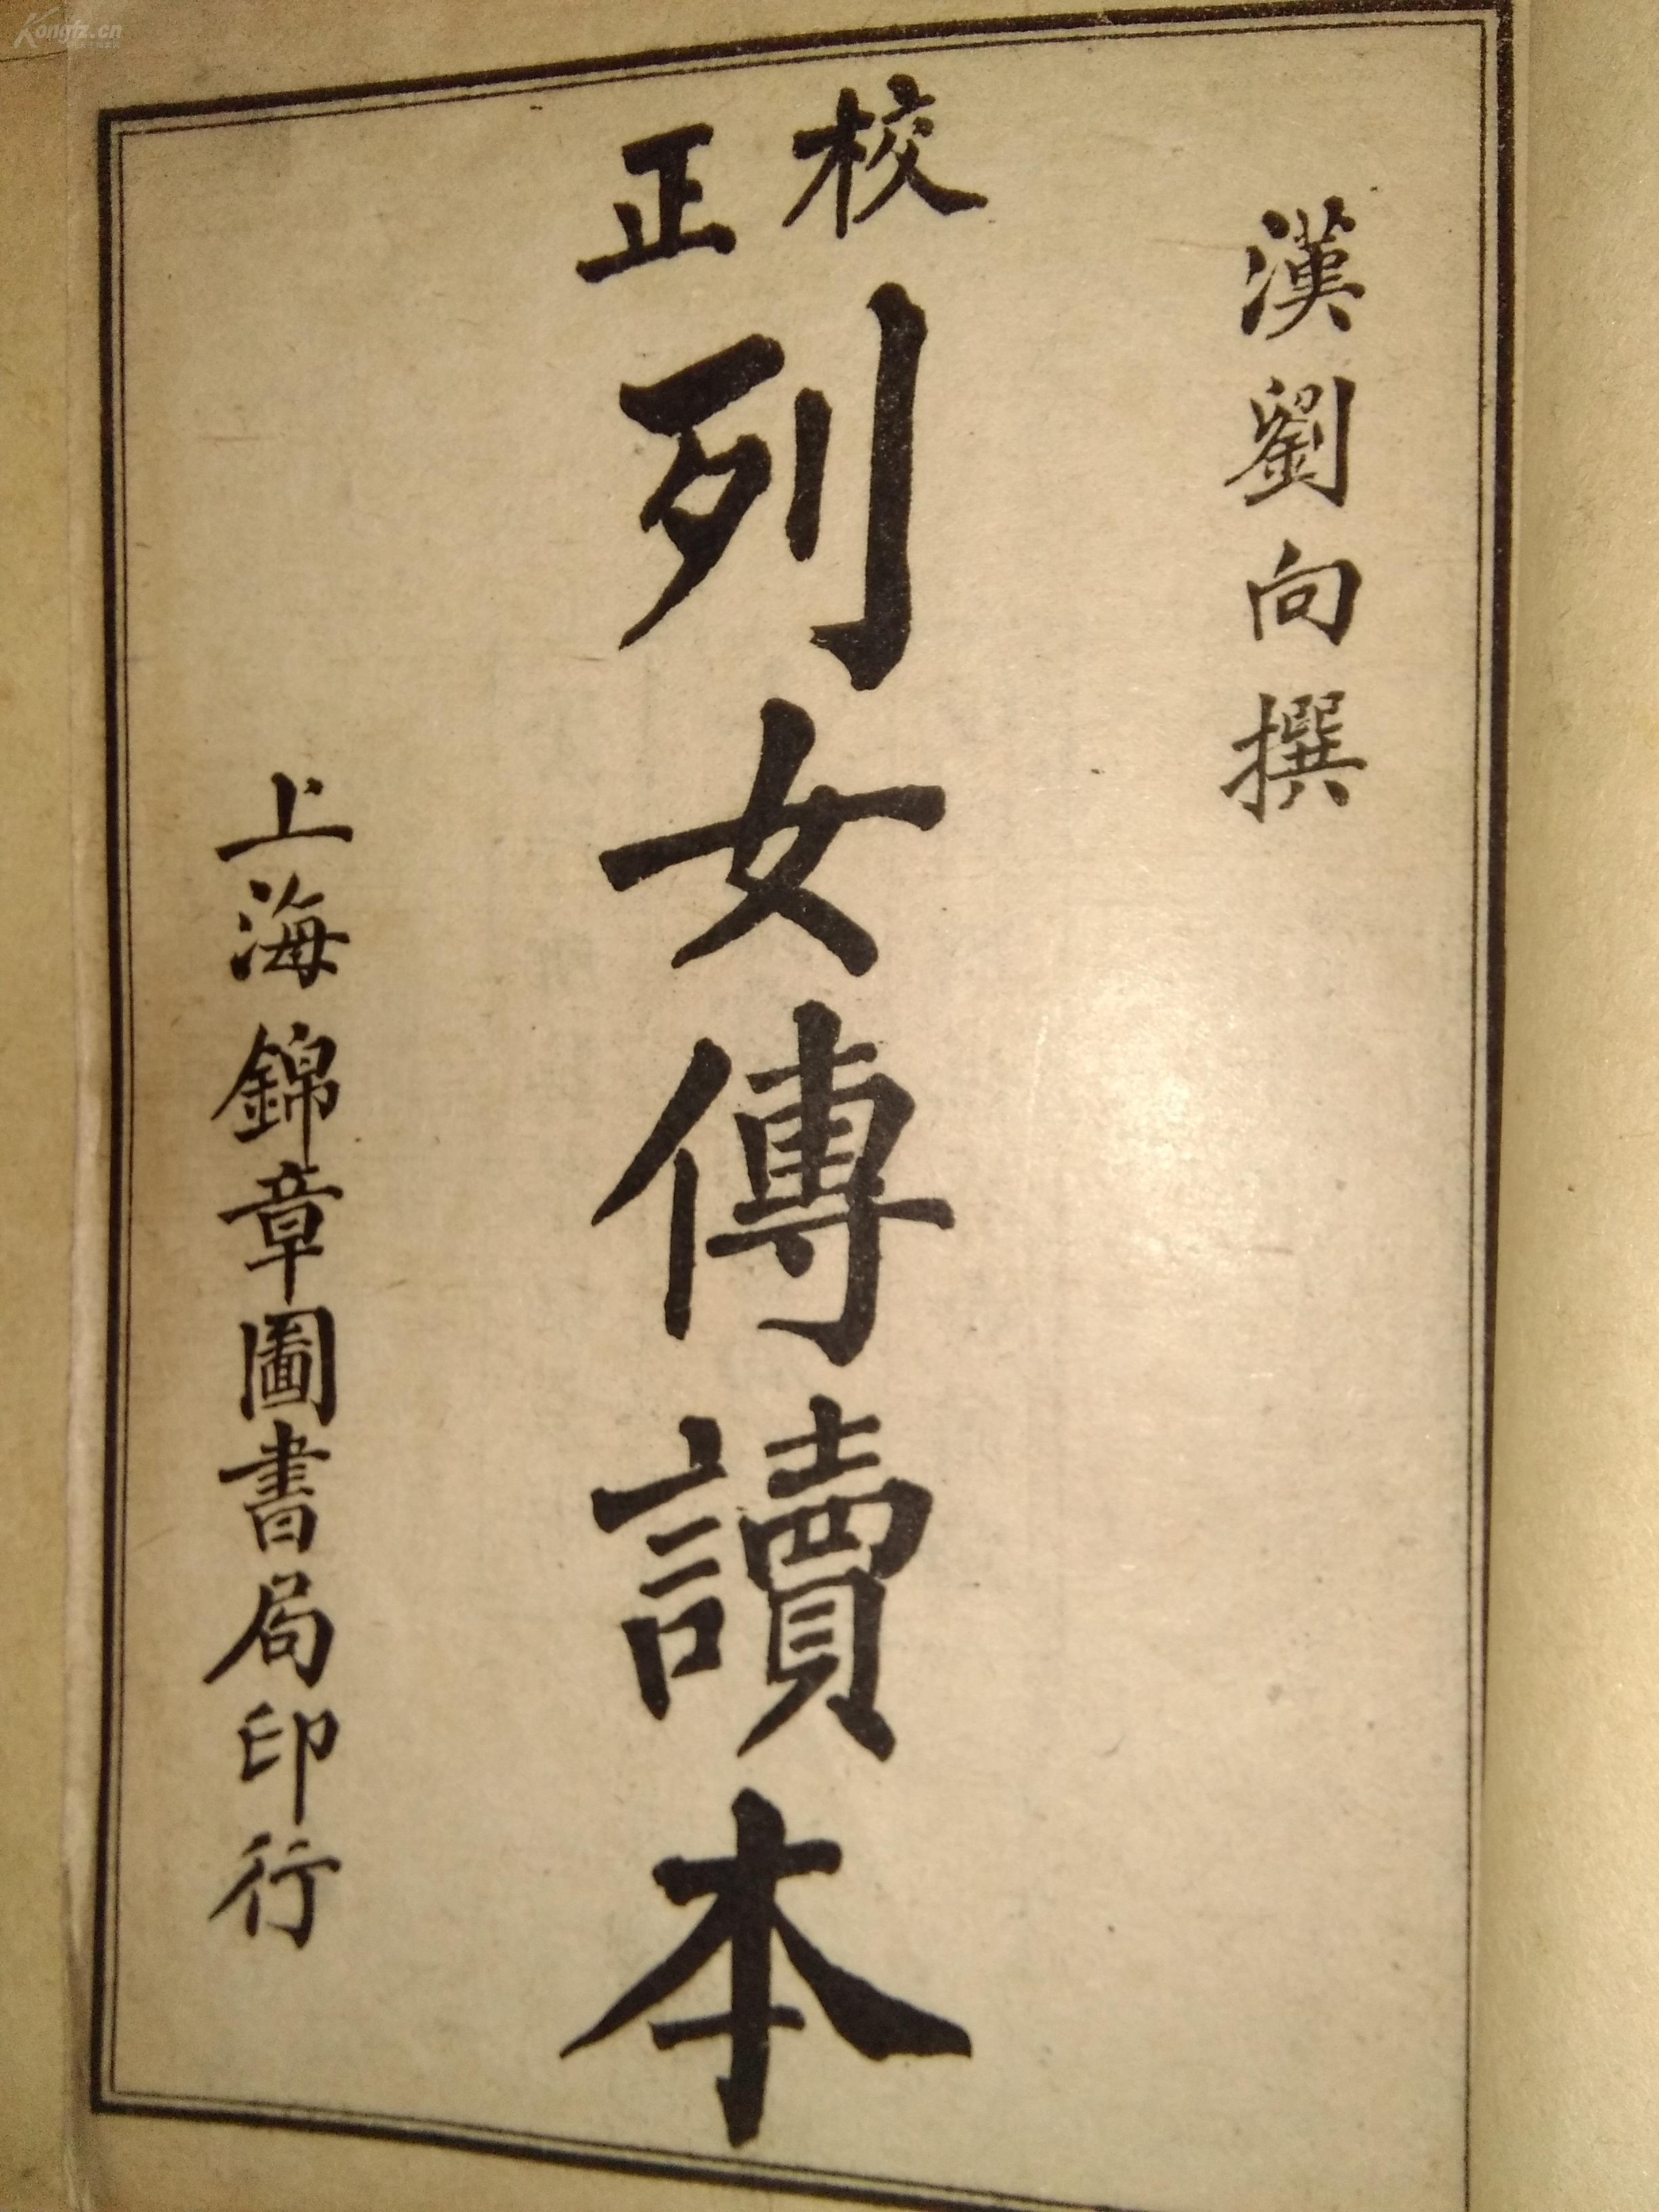 漢劉向撰
校正
列女傳讀本
上海錦章圖書局印行
Kongfz.cn